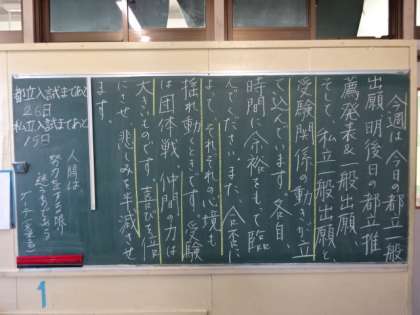 今週は、今日の都立一般
出願、明後日の都立推
薦発表&一般出願、
そして、私立一般出願と
受験関係の動きが立
て込んでいます。各自、
時間に余裕をもって臨
んでください。また、合否に
よって、それぞれの心境も
揺れ動くときです。受験
は団体戦。仲間の力は
大きいものです。喜びを倍
にさせ、悲しみを半減させ
ます。
都立入試まであと
26日
私立入試まであと
15日
人間は
努力をする限
迷うものである
ゲーテ
1